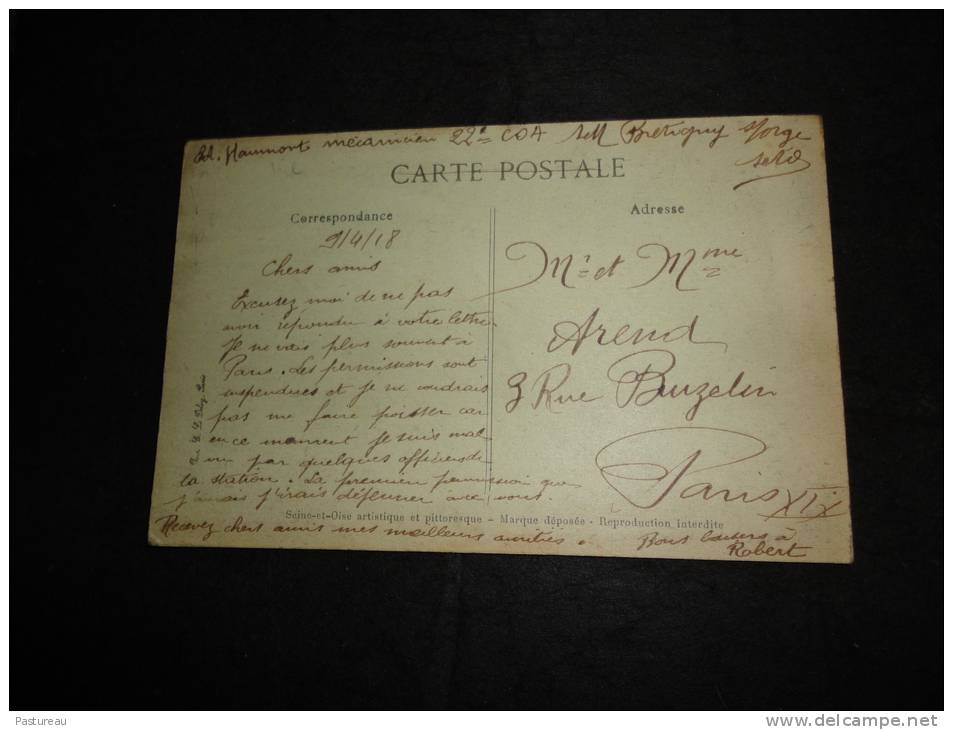 Haumont mécanicien 22e COA Sell Bretigny s/orge
S et O
CARTE POSTALE
Correspondance
Adresse
9/4/18
Chers amis
Excusez moi de ne pas
avoir répondu à votre lettre.
Je ne vais plus souvent à
Paris. Les permissions sont
suspendues et je ne voudrais
pas me faire poisser car
en ce moment je suis mal
vu par quelques officiers de
la station. La première permission que
j'aurais j'irais déjeuner avec vous.
Recevez chers amis mes meilleurs amitiés.
Bons baisers à
Robert
Mr et Mme
Arend
3 Rue Buzelin
Paris XIX
Seine-et-Oise artistique et pittoresque - Marque déposée - Reproduction interdite
Pastureau
www.delcampe.net